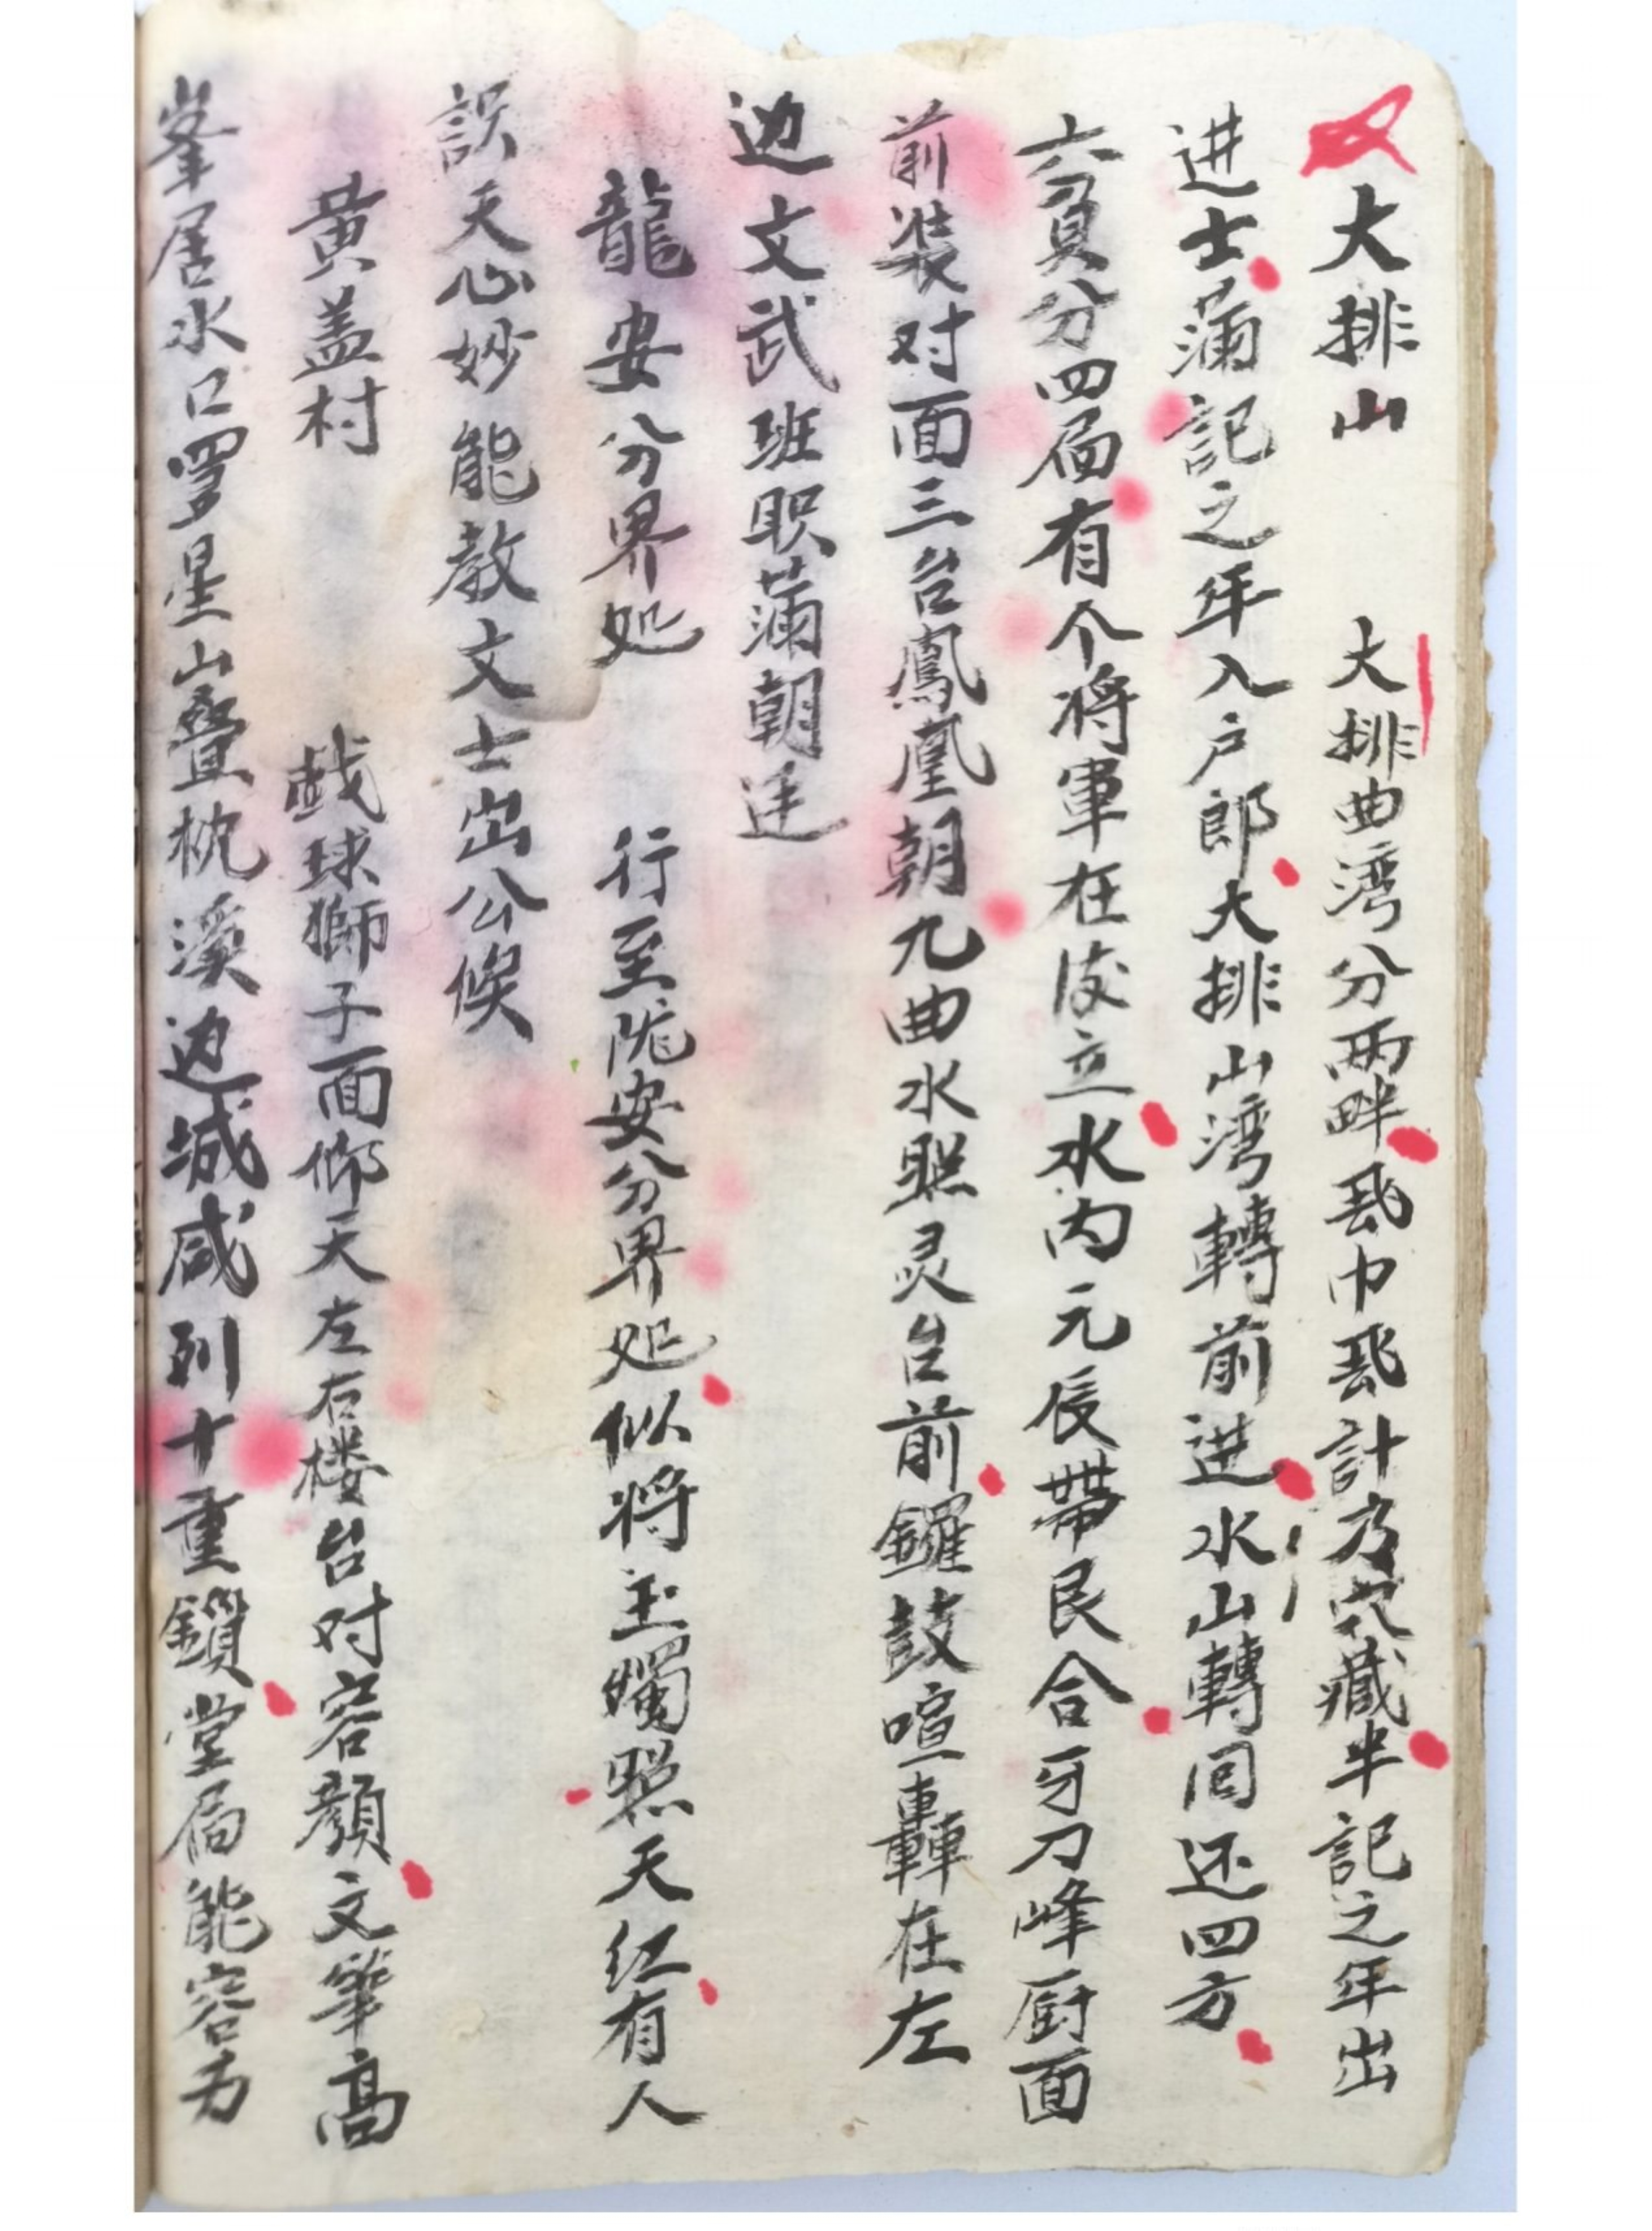 大排山 大排曲湾分两畔飛巾飛計乃穴藏半記之年出
进士蒲記之年入户郎大排山湾轉前进水山轉囘还四方
六負分四局有个将軍在后立水内元辰帶艮合牙刀峰厨面
前裝对面三台鳳凰朝九曲水照灵台前鑼鼓喧轟在左
边文武班职蒲朝廷
龍安分界处 行至陇安分界处似将玉燭照天红有人
誤天心妙能教文士出公候
黃盖村 戯球獅子面仰天左右楼台对容顏文筆高
峯居水口罗星山叠枕溪边城咸列十重鎖堂局能容万